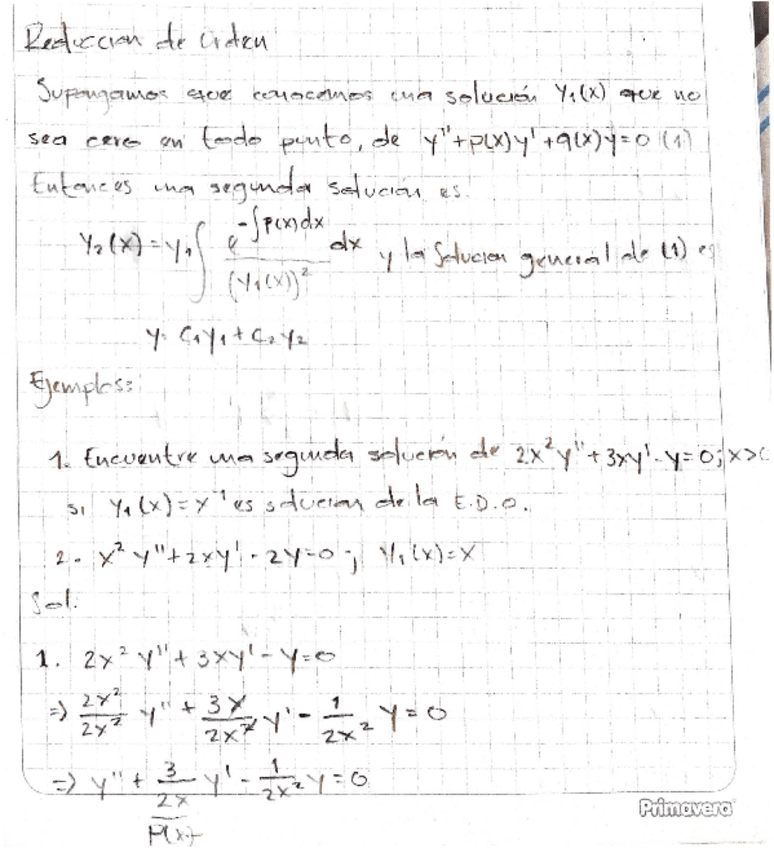 Reduccion de Orden
Supongamos que conocemos una solución y₁(x) que no
sea cero en todo punto, de y''+p(x)y'+q(x)y=0 (1)
Entonces una segunda solución es
y₂(x)=y₁∫ e^(-∫p(x)dx) / (y₁(x))² dx y la solucion general de (1) es
y= C₁y₁+C₂y₂
Ejemplos:
1. Encuentre una segunda solución de 2x²y''+3xy'-y=0; x>0
si y₁(x)=x⁻¹ es solucion de la E.D.O.
2. x²y''+2xy'-2y=0; y₁(x)=x
Sol.
1. 2x²y''+3xy'-y=0
⇒ 2x²/2x² y''+ 3x/2x² y' - 1/2x² y=0
⇒ y''+ 3/2x y' - 1/2x² y=0
p(x)
Primavera